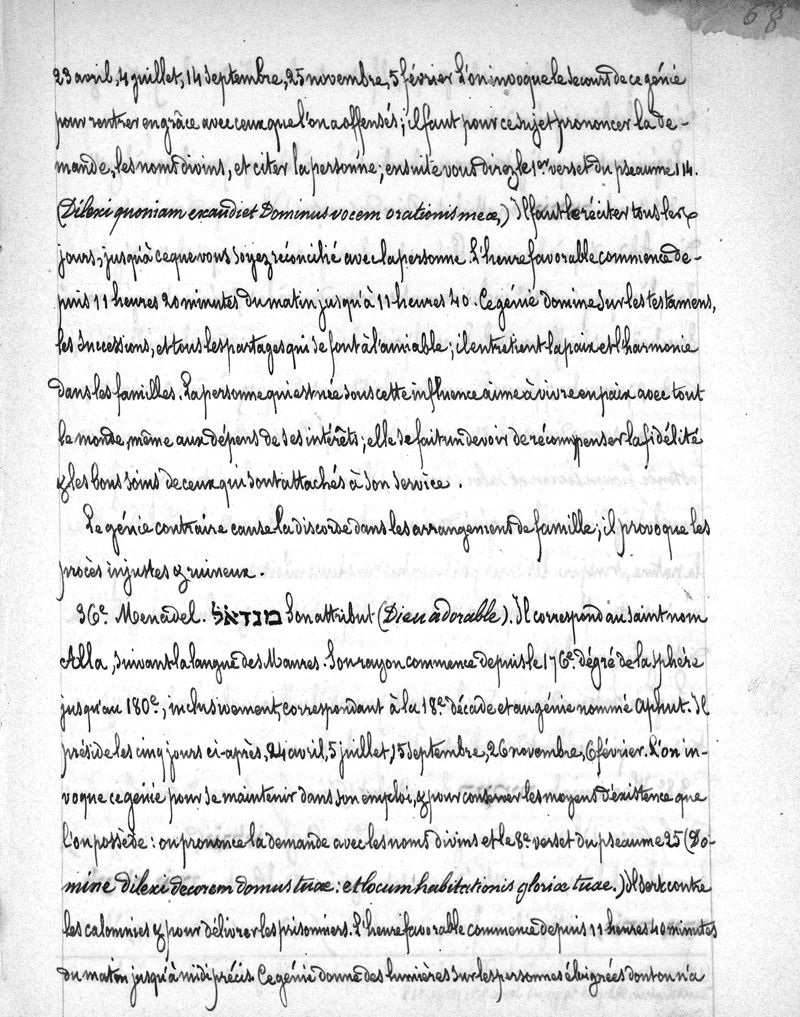 68
23 avril, 4 juillet, 14 septembre, 25 novembre, 5 février L'on invoque le secours de ce génie
pour rentrer en grâce avec ceux que l'on a offensés ; il faut pour ce sujet prononcer la de-
mande, les noms divins, et citer la personne ; ensuite vous direz le 1er verset du pseaume 114.
(Dilexi quoniam exaudiet Dominus vocem orationis meæ,) Il faut le réciter tous les
jours, jusqu'à ce que vous soyez réconcilié avec la personne. L'heure favorable commence de-
puis 11 heures 20 minutes du matin jusqu'à 11 heures 40. Ce génie domine sur les testamens,
les successions, et tous les partages qui se font à l'amiable ; il entretient la paix et l'harmonie
dans les familles. La personne qui est née sous cette influence aime à vivre en paix avec tout
le monde, même aux dépens de ses intérêts ; elle se fait un devoir de récompenser la fidélité
& les bons soins de ceux qui sont attachés à son service .
Le génie contraire cause la discorde dans les arrangements de famille ; il provoque les
procès injustes & ruineux .
36e. Menadel. מנדאל Son attribut (Dieu adorable). Il correspond au saint nom
Alla, suivant la langue des Maures. Son rayon commence depuis le 176e. dégré de la sphère
jusqu'au 180e, inclusivement, correspondant à la 18e. décade et au génie nommé Aphut. Il
préside les cinq jours ci-après, 24 avril, 5 juillet, 15 septembre, 26 novembre, 6 février. L'on in-
voque ce génie pour se maintenir dans son emploi, & pour conserver les moyens d'éxistence que
l'on possède : on prononce la demande avec les noms divins et le 8e. verset du pseaume 25 (Do-
mine dilexi decorem domus tuæ : et locum habitationis gloriæ tuæ.) Il sert contre
les calomnies & pour délivrer les prisonniers. L'heure favorable commence depuis 11 heures 40 minutes
du matin jusqu'à midi précis. Ce génie donne des lumières sur les personnes éloignées dont on n'a